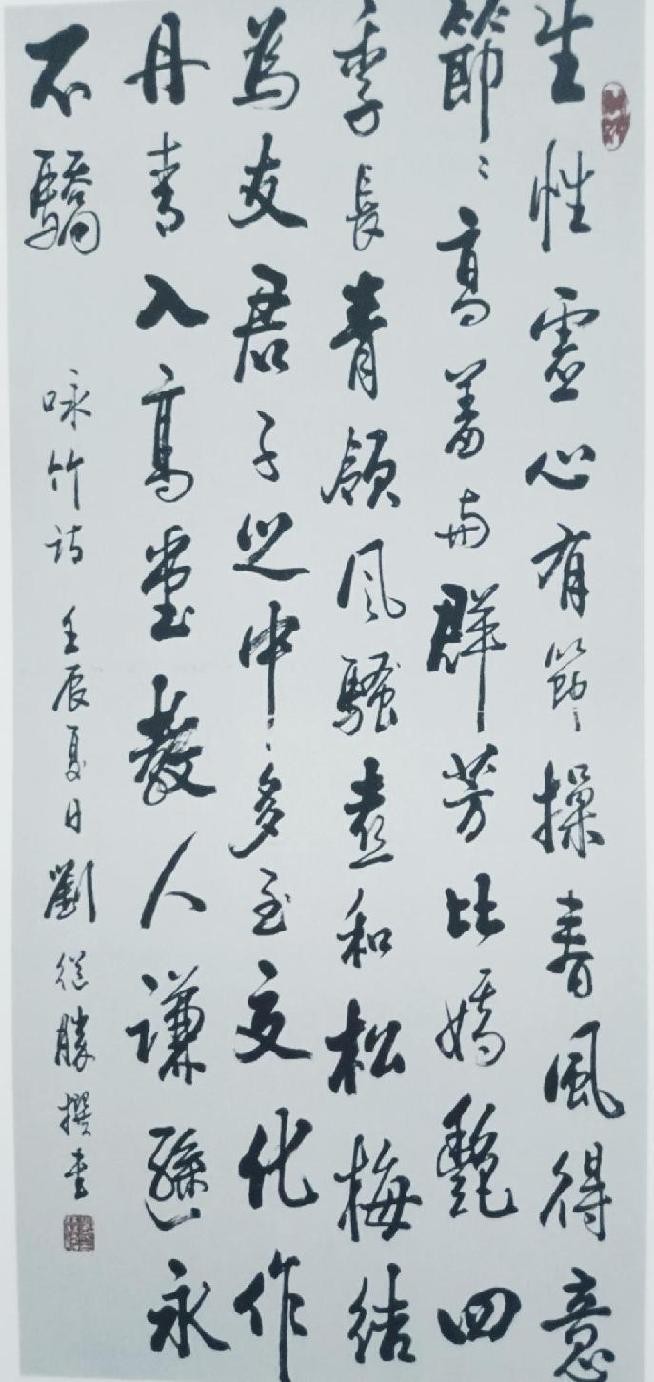 生性虛心有節操春風得意
節〻高羞与群芳比嬌艷四
季長青領風騷喜和松梅結
為友君子之中多至交化作
丹青入高堂教人謙遜永
不驕
咏竹詩 壬辰夏日劉從勝撰書